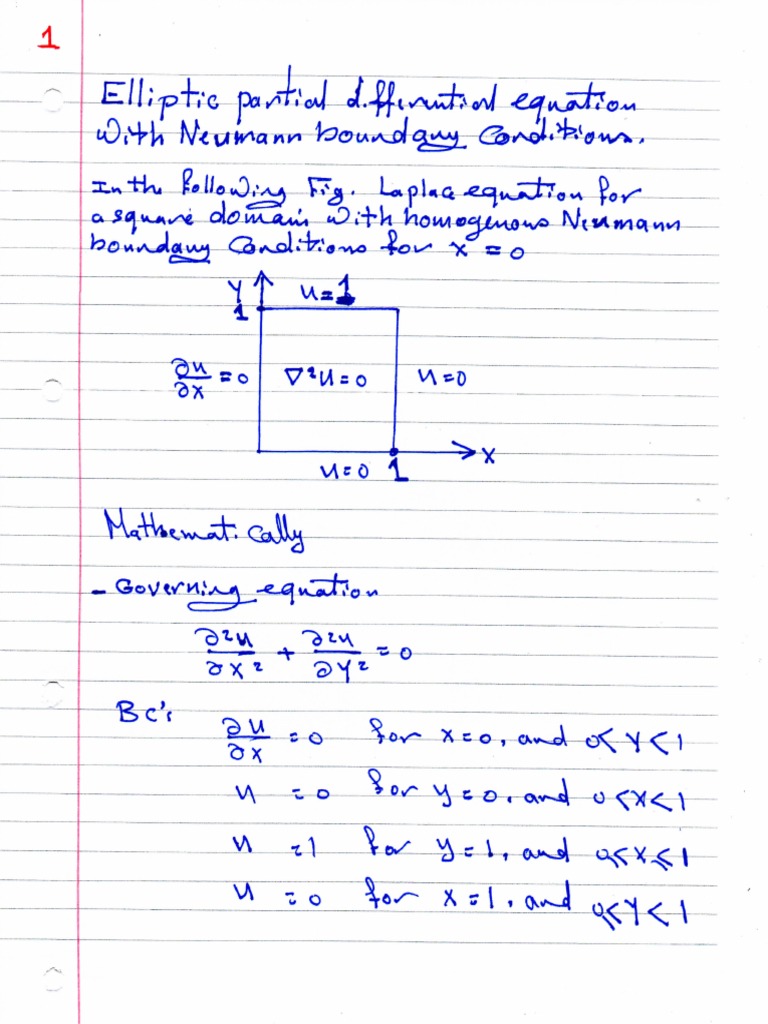 1
Elliptic partial differential equation
With Neumann boundary Conditions.
In the following Fig. Laplace equation for
a square domain with homogenous Neumann
boundary Conditions for x = 0
Y u=1
1
∂u/∂x = 0 ∇²u=0 u=0
x
u=0 1
Mathematically
- Governing equation
∂²u/∂x² + ∂²u/∂y² = 0
BC's ∂u/∂x = 0 for x=0, and 0<y<1
u = 0 for y=0, and 0<x<1
u =1 for y=1, and 0≤x≤1
u = 0 for x=1, and 0≤y<1